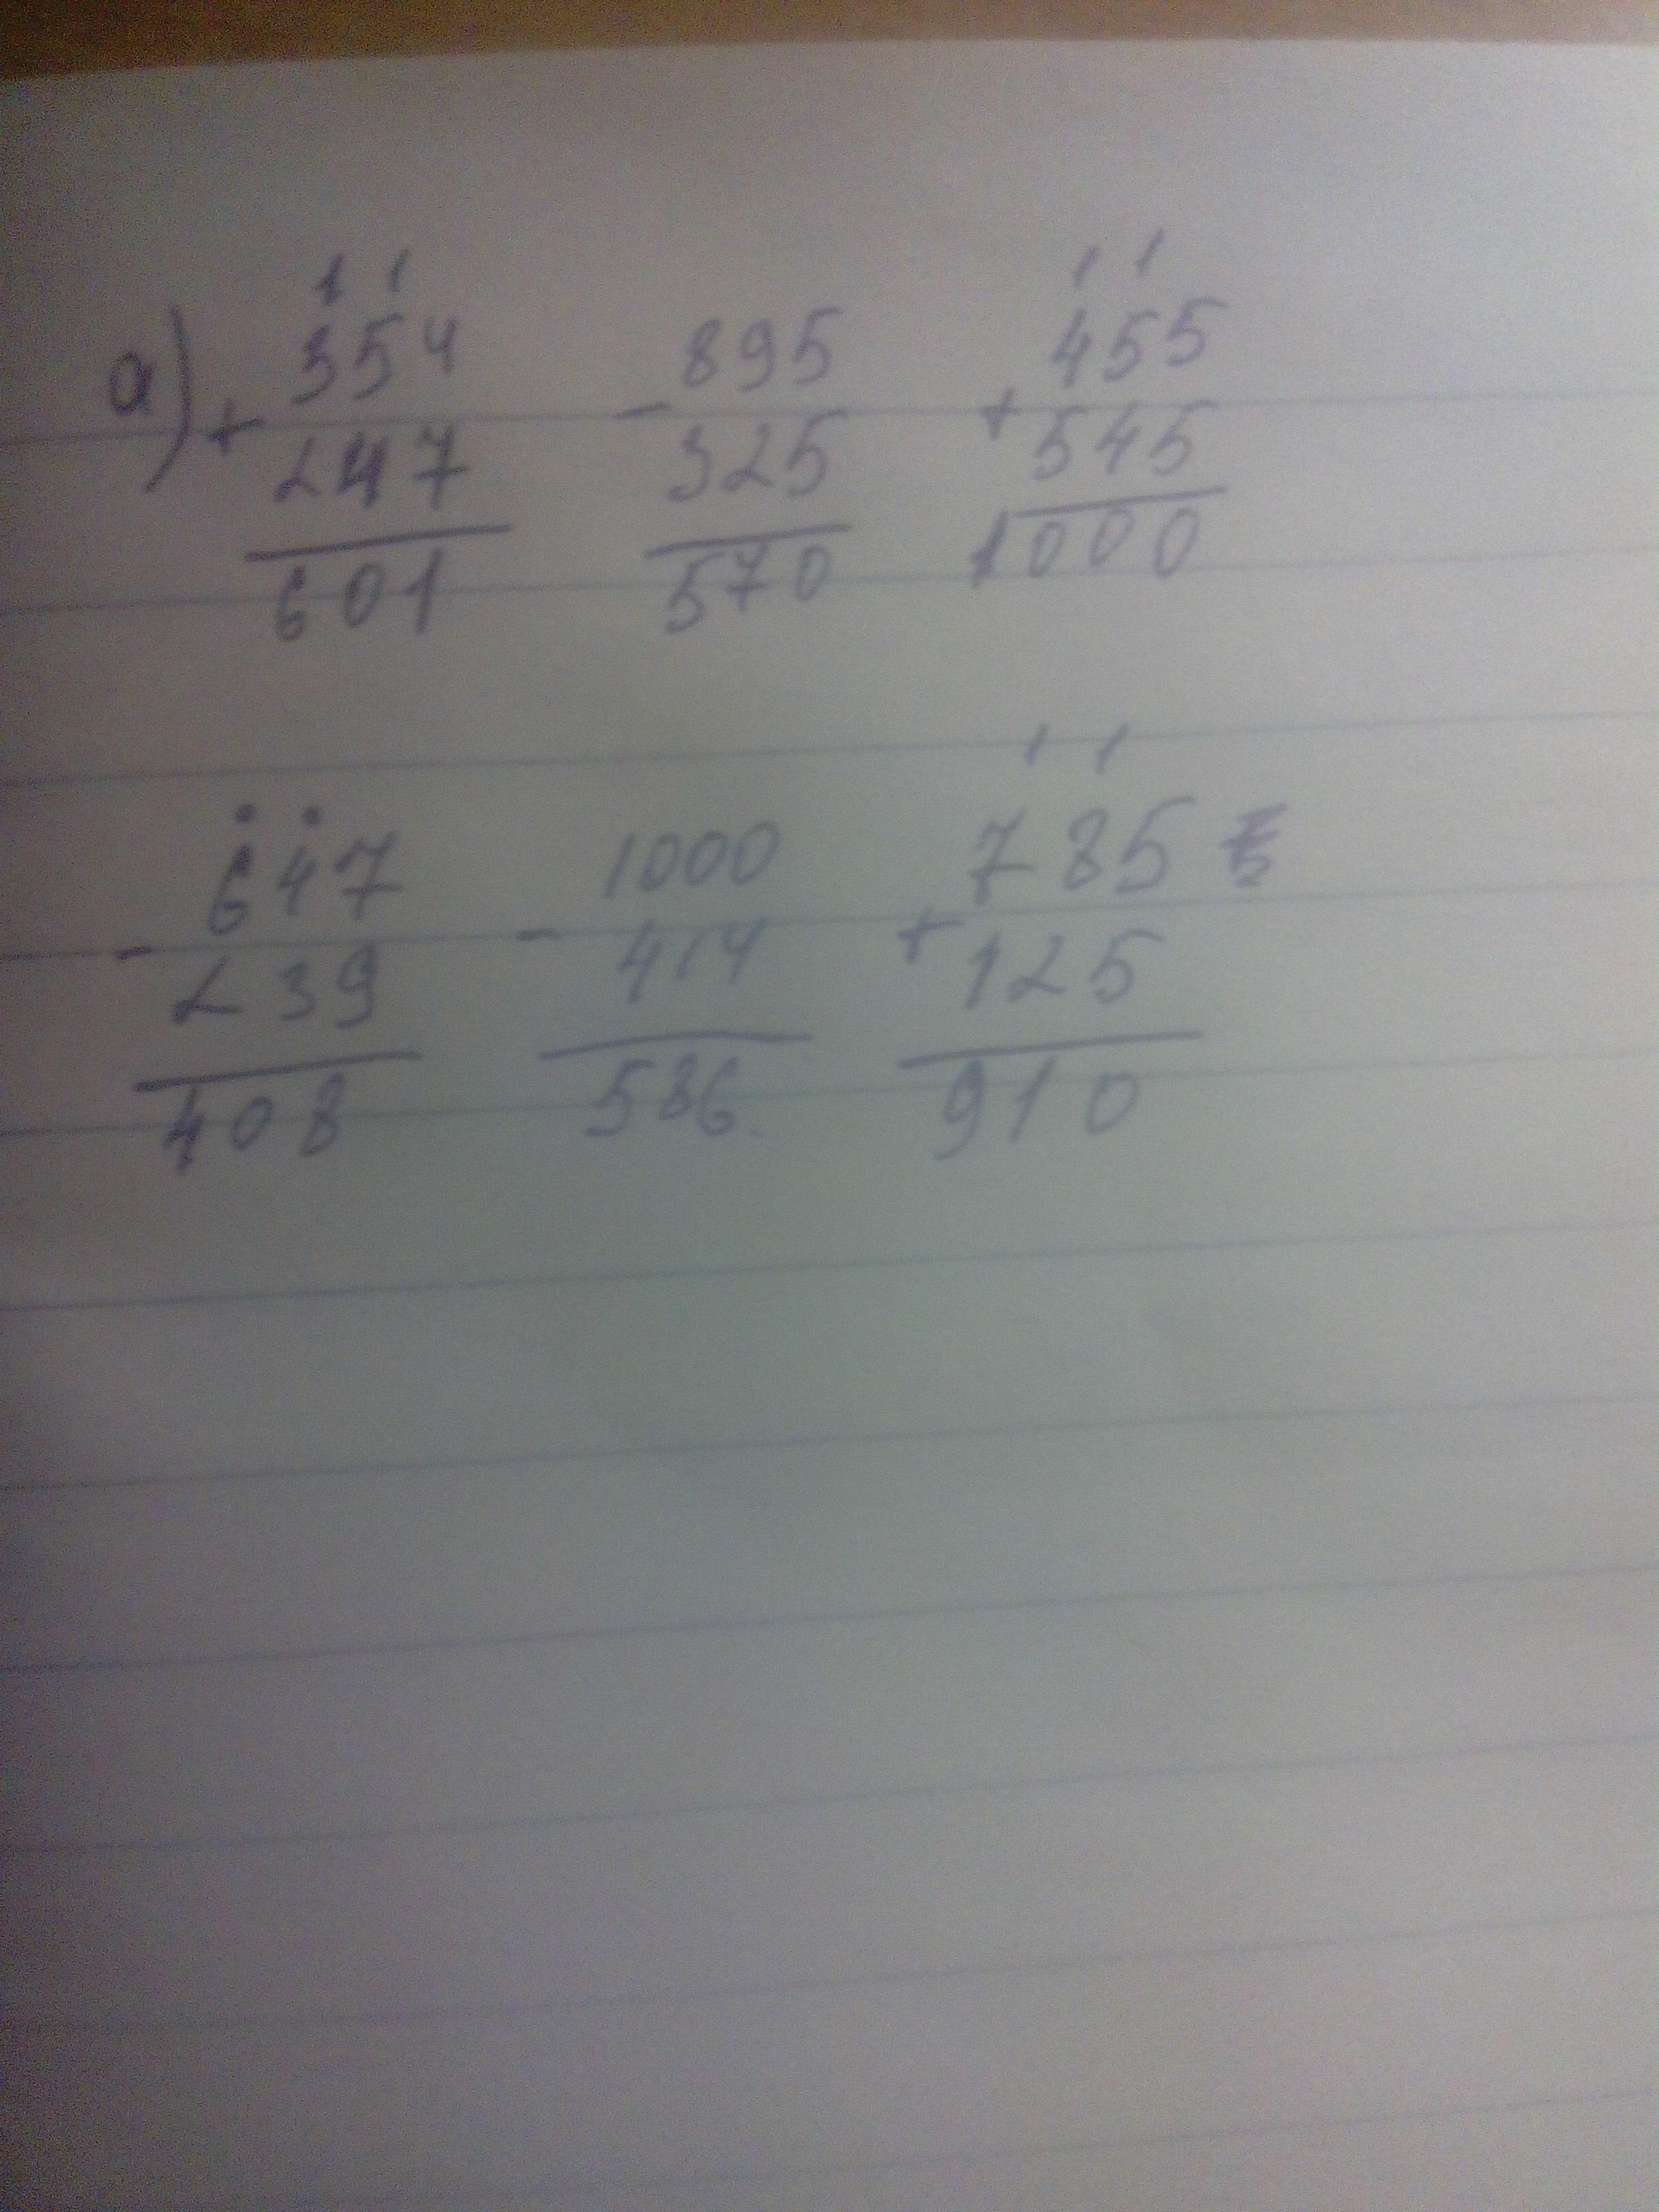 1 1 1 1
а) + 354 - 895 + 455
247 325 545
601 570 1000
1 1
- 647 - 1000 + 785
239 414 125
408 586. 910